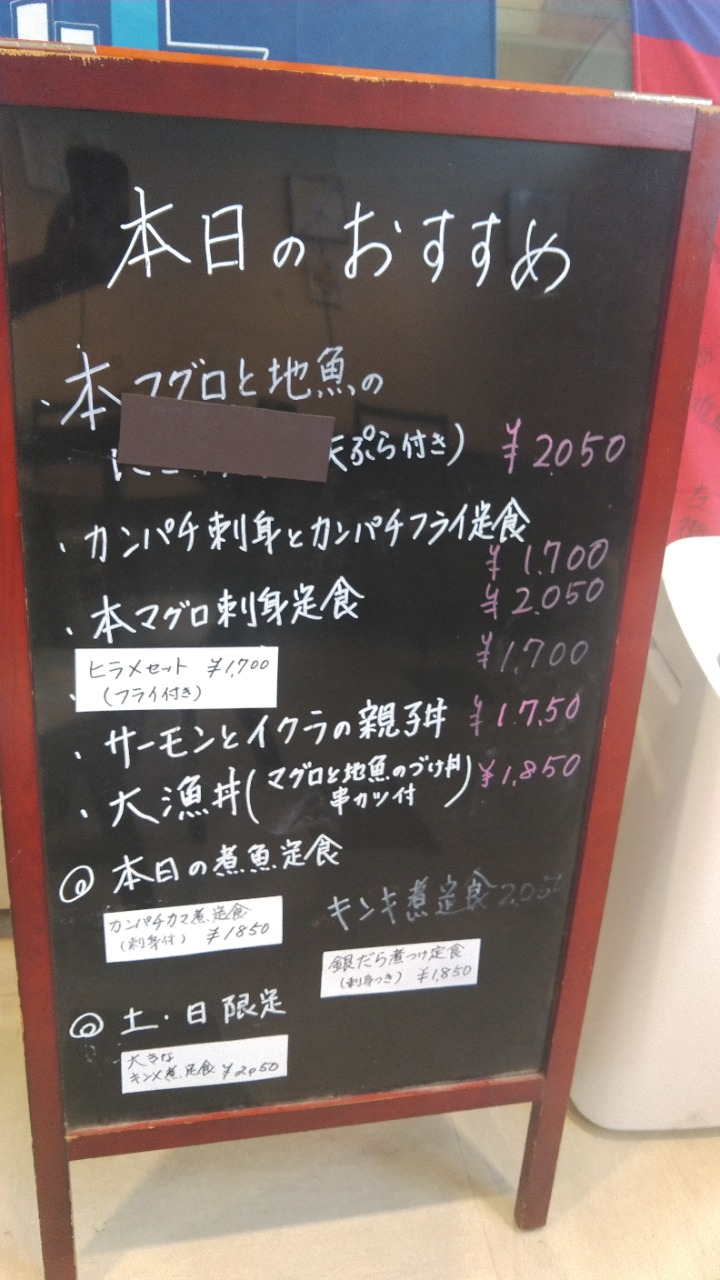 本日のおすすめ
・本マグロと地魚の
天ぷら付き) ¥2050
・カンパチ刺身とカンパチフライ定食
¥1.700
・本マグロ刺身定食 ¥2.050
ヒラメセット ¥1,700
(フライ付き)
¥1,700
・サーモンとイクラの親子丼 ¥1.750
・大漁丼(マグロと地魚のづけ丼
串カツ付) ¥1,850
◎本日の煮魚定食
カンパチカマ煮定食
(刺身付) ¥1850
キンキ煮定食 2,050
銀だら煮つけ定食
(刺身つき) ¥1,850
◎土・日限定
大きな
キンメ煮定食 ¥2,050